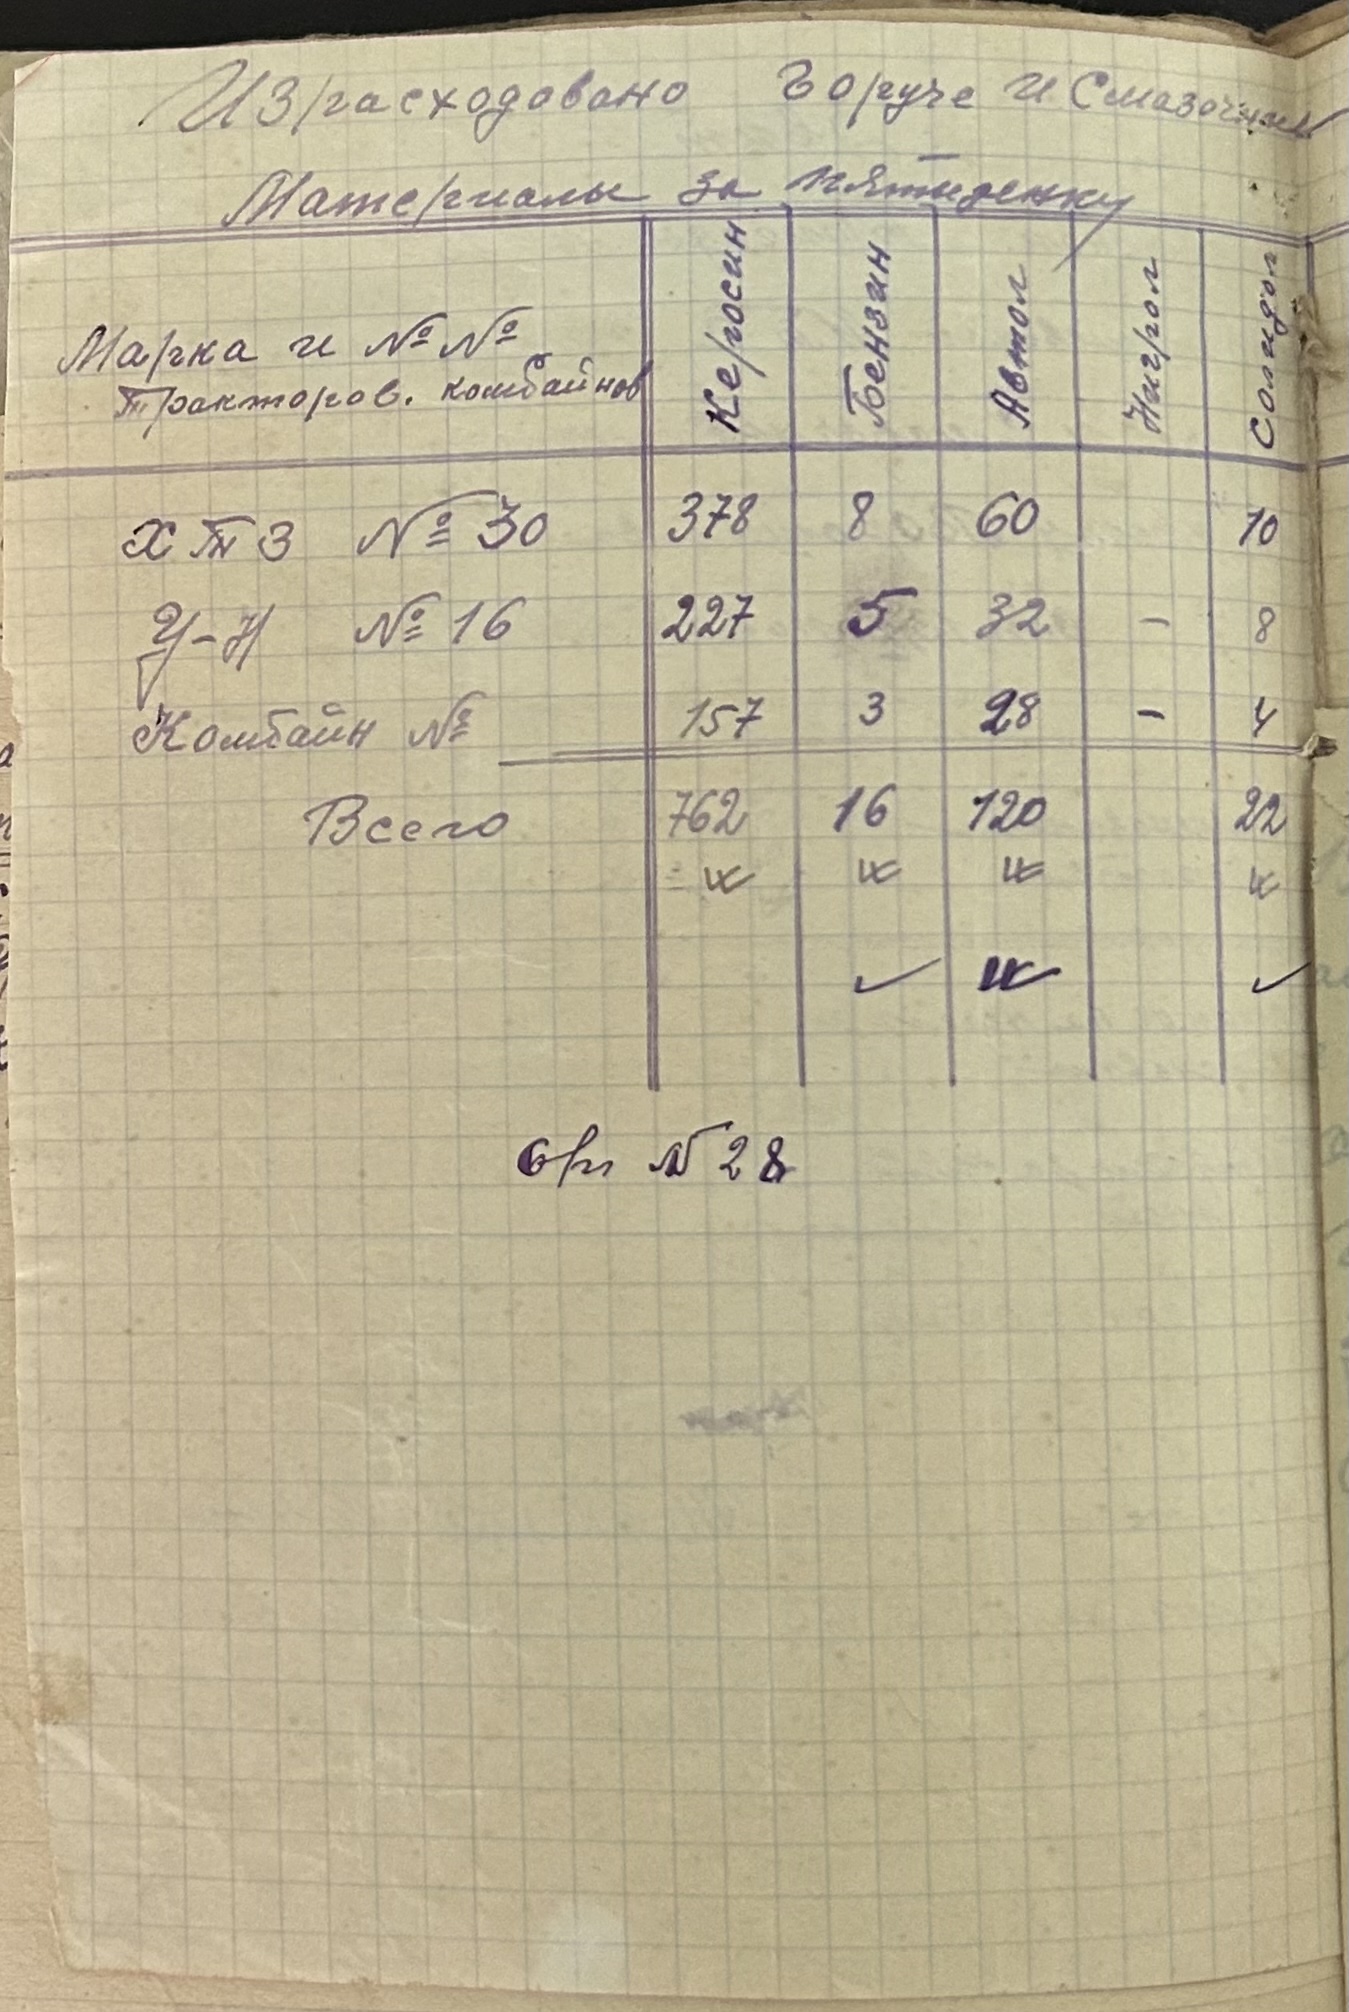 Израсходовано Горуче и Смазочные
Материалы за пятиденку
Марка и №№ Тракторов. комбайнов
Керосин Бензин Автол Нигрол Солидол
ХТЗ № 30 378 8 60 10
У-Н № 16 227 5 32 - 8
Комбайн № 157 3 28 - 4
Всего 762 16 120 22
бр № 28